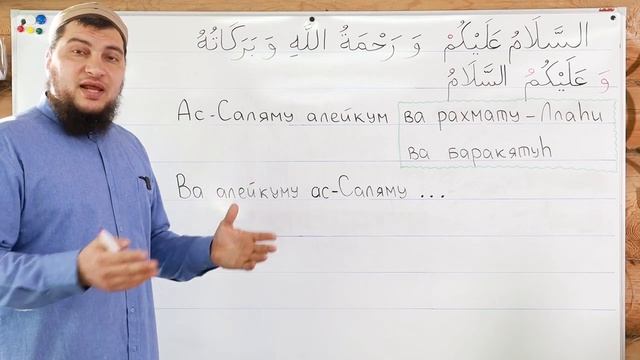 السَّلَامُ عَلَيْكُمْ وَ رَحْمَةُ اللَّهِ وَ بَرَكَاتُهُ
وَ عَلَيْكُمُ السَّلَامُ
Ас-Саляму алейкум ва рахмату-Ллаhи
ва баракятуh
Ва алейкуму ас-Саляму ...